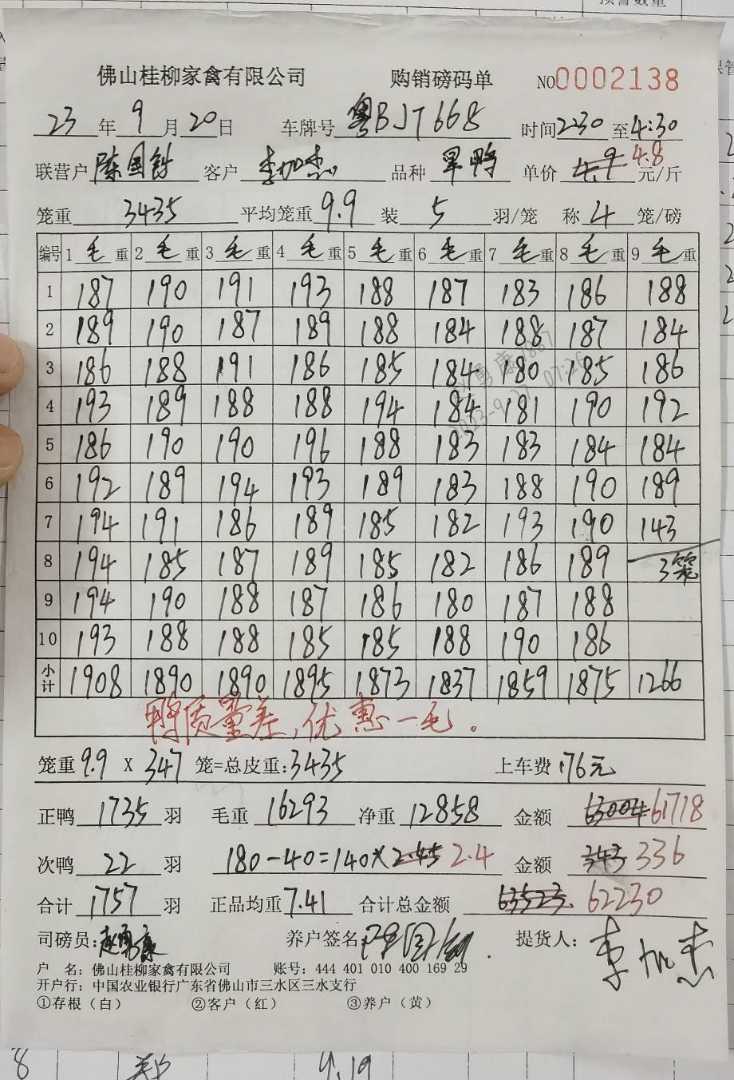 佛山桂柳家禽有限公司 购销磅码单 NO0002138
23年9月20日 车牌号 粤BJT668 时间2:30至4:30
联营户 客户 李加杰 品种 旱鸭 单价 4.9 4.8 元/斤
笼重 3435 平均笼重9.9 装 5 羽/笼 称 4 笼/磅
编号 1 毛 重 2 毛 重 3 毛 重 4 毛 重 5 毛 重 6 毛 重 7 毛 重 8 毛 重 9 毛 重
1 187 190 191 193 188 187 183 186 188
2 189 190 187 189 188 184 188 187 184
3 186 188 191 186 185 184 180 185 186
4 193 189 188 188 194 184 181 190 192
5 186 190 190 196 188 183 183 184 184
6 192 189 194 193 189 183 188 190 189
7 194 191 186 189 185 182 193 190 143
8 194 185 187 189 185 182 186 189 3笼
9 194 190 188 187 186 180 187 188
10 193 188 188 185 185 188 190 186
小计 1908 1890 1890 1895 1873 1837 1859 1875 1266
鸭质量差,优惠一毛。
笼重9.9 X 347 笼=总皮重:3435 上车费 176元
正鸭 1735 羽 毛重 16293 净重 12858 金额 63004 61718
次鸭 22 羽 180-40=140×2.45 2.4 金额 343 336
合计 1757 羽 正品均重7.41 合计总金额 63523. 62230
司磅员: 赵勇康 养户签名 提货人: 李加杰
户 名: 佛山桂柳家禽有限公司 账号: 444 401 010 400 169 29
开户行: 中国农业银行广东省佛山市三水区三水支行
①存根(白) ②客户(红) ③养户(黄)
8 9.19